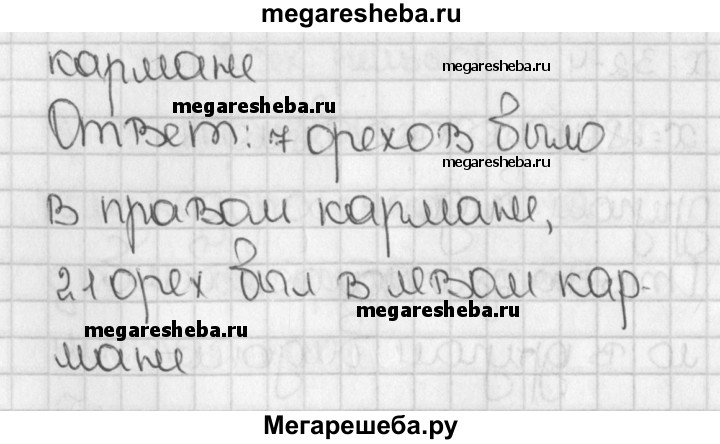 megaresheba.ru
кармане
megaresheba.ru
megaresheba.ru
Ответ: 7 орехов было
megaresheba.ru
в правом кармане,
21 орех был в левом кар-
megaresheba.ru
megaresheba.ru
мане
Мегарешеба.ру